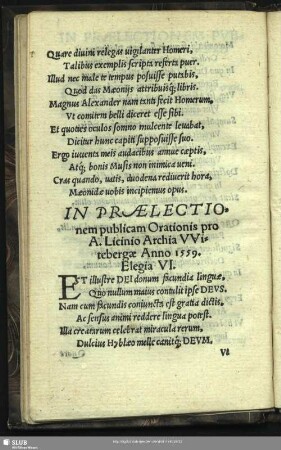 Quare diuini relegas uigilanter Homeri,
Talibus exemplis scripta referta puer.
Illud nec male te tempus posuisse putabis,
Quod das Mæonijs attribuisq́; libris.
Magnus Alexander nam tanti fecit Homerum,
Vt comitem belli diceret esse sibi.
Et quoties oculos somno mulcente leuabat,
Dicitur hunc capiti supposuisse suo.
Ergo iuuenta meis audacibus annue cœptis,
Atq́; bonis Musis non inimica ueni.
Cras quando, uatis, duodena rediuerit hora,
Mæonidæ uobis incipiemus opus.
IN PRÆLECTIO-
nem publicam Orationis pro
A. Licinio Archia VVi-
tebergæ Anno 1559.
Elegia VI.
EST illustre DEI donum facundia linguæ,
Quo nullum maius contulit ipse DEVS.
Nam cum facundis coniuncta est gratia dictis,
Ac sensus animi reddere lingua potest.
Illa creatarum celebrat miracula rerum,
Dulcius Hyblæo melle canitq́; DEVM.
Vt
SLUB